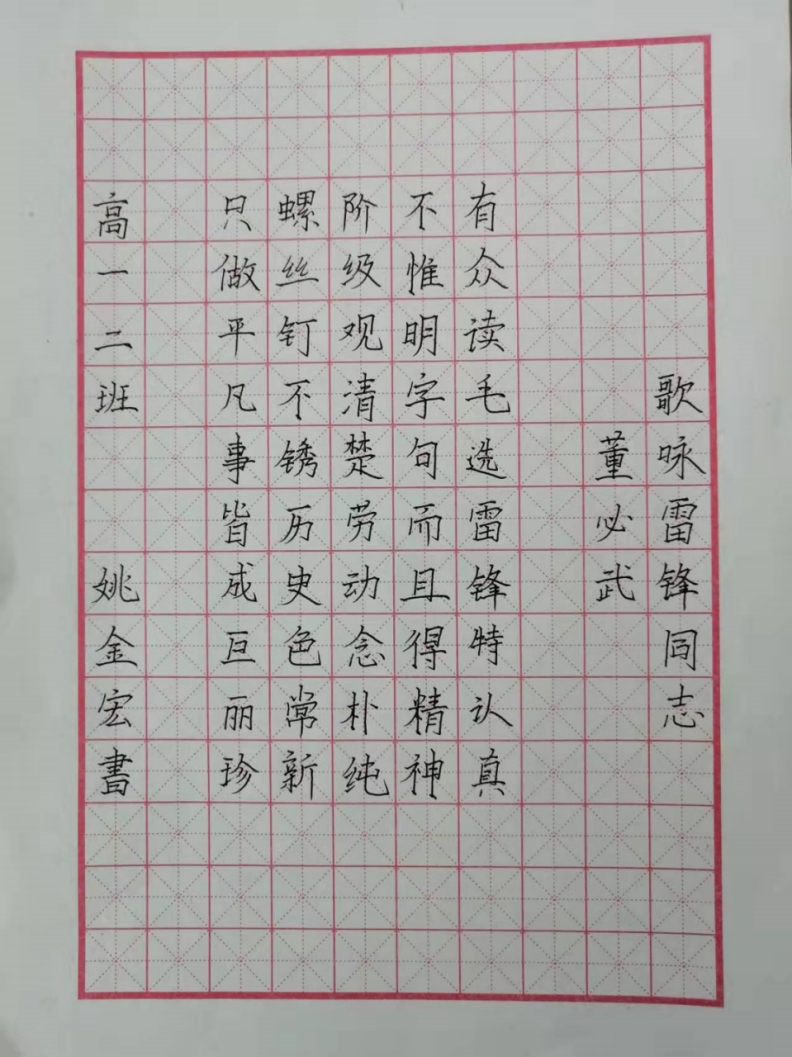 歌咏雷锋同志
董必武
有众读毛选雷锋特认真
不惟明字句而且得精神
阶级观清楚劳动念朴纯
螺丝钉不锈历史色常新
只做平凡事皆成巨丽珍
高一二班 姚金宏書